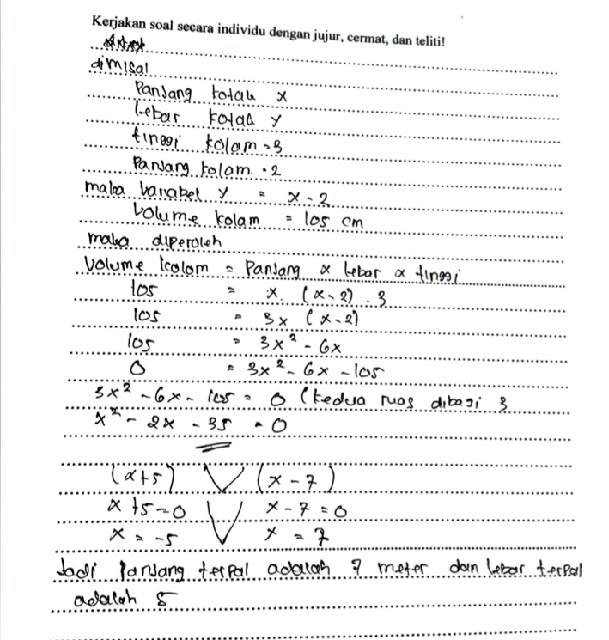 Kerjakan soal secara individu dengan jujur, cermat, dan teliti!
dimisal
Panjang kotak x
Lebar kotak y
tinggi kolam = 3
Panjang kolam . 2
maka variabel y = x - 2
Volume kolam = 105 cm
maka diperoleh
Volume kolam = Panjang x lebar x tinggi
105 = x . (x - 2) . 3
105 = 3x (x - 2)
105 = 3x² - 6x
0 = 3x² - 6x - 105
3x² - 6x - 105 = 0 (kedua ruas dibagi 3
x² - 2x - 35 = 0
(x+5) V (x - 7)
x + 5 = 0 V x - 7 = 0
x = -5 x = 7
Jadi panjang terpal adalah 7 meter dan lebar terpal
adalah 5